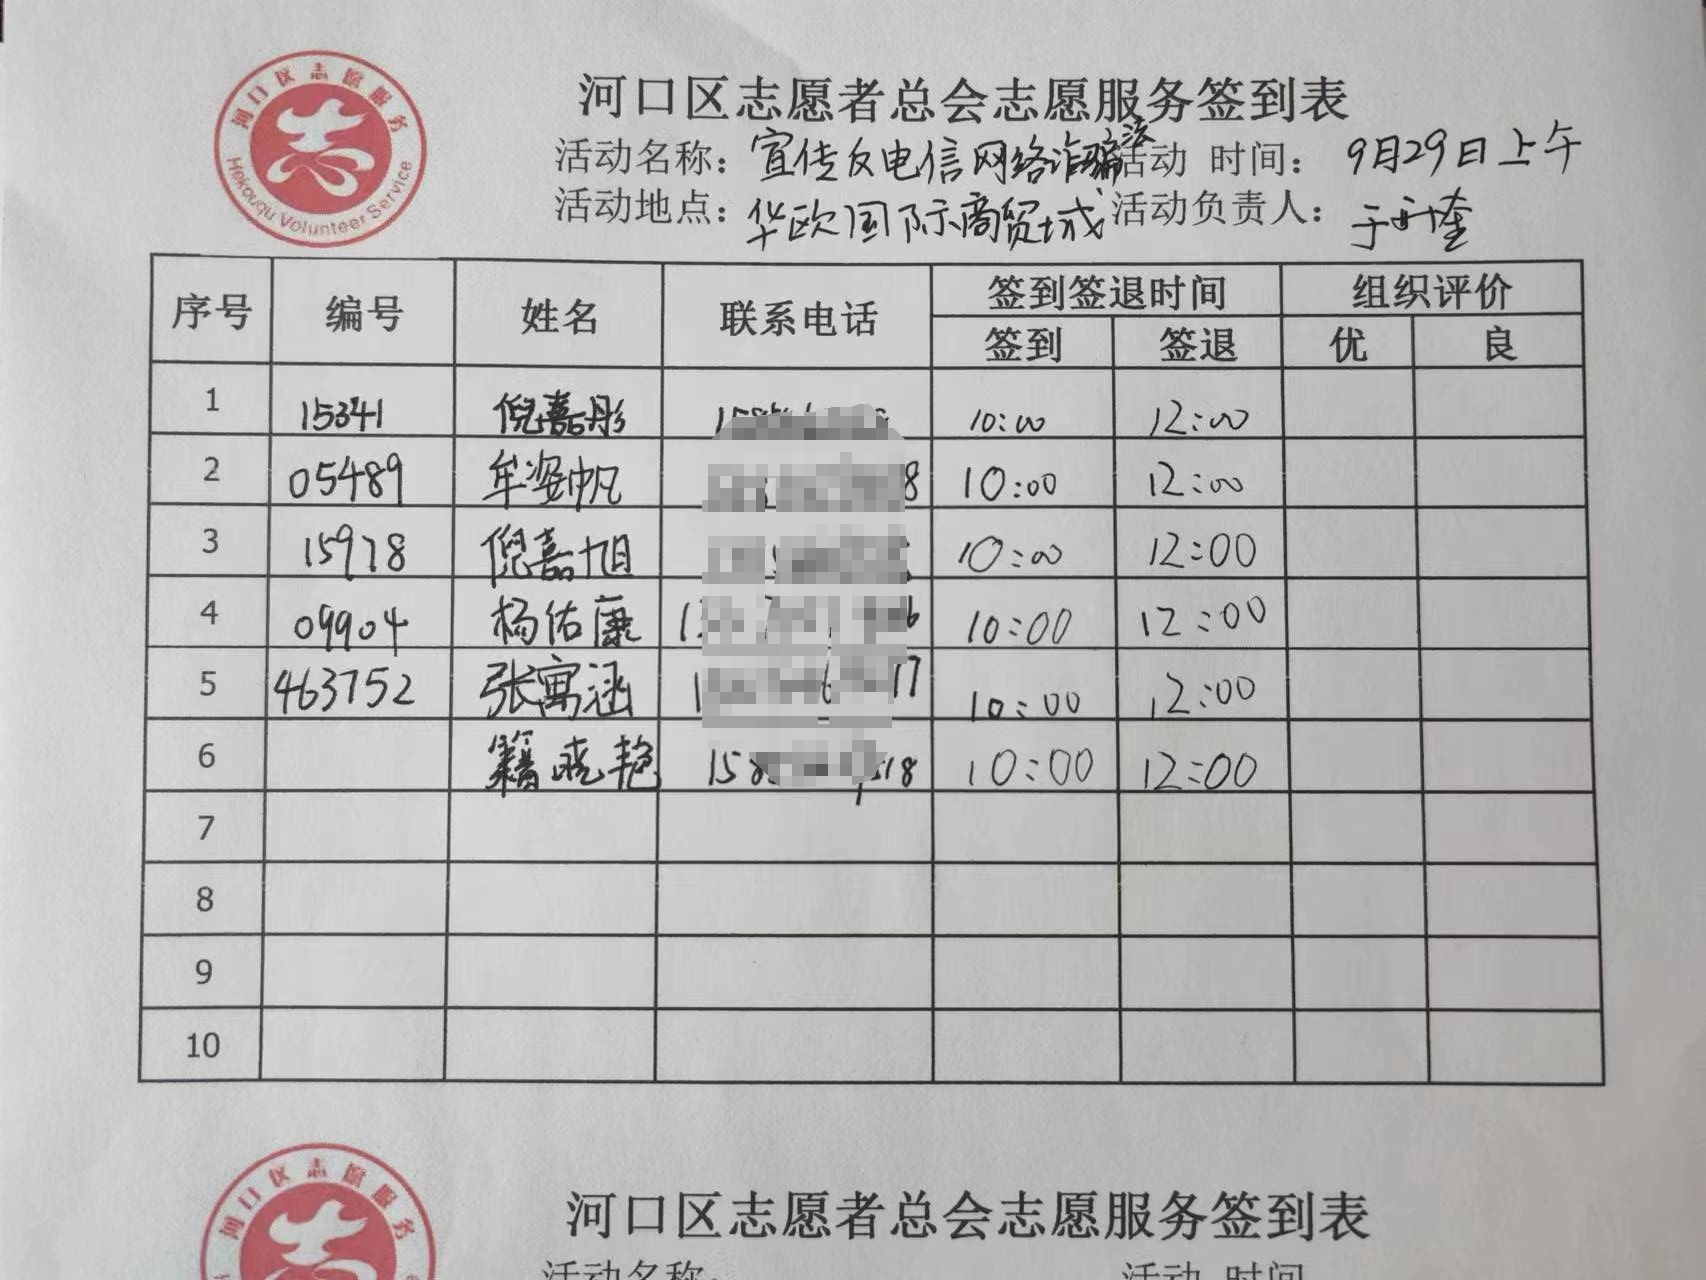 河口区志愿服务
Hekouqu Volunteer Service
河口区志愿者总会志愿服务签到表
活动名称：宣传反电信网络诈骗法活动 时间：9月29日上午
活动地点：华欧国际商贸城 活动负责人：于
序号 编号 姓名 联系电话 签到签退时间 组织评价
签到 签退 优 良
1 15341 倪嘉彤 10:00 12:00
2 05489 牟姿帆 8 10:00 12:00
3 15978 倪嘉旭 10:00 12:00
4 09904 杨佑康 6 10:00 12:00
5 463752 张寓涵 17 10:00 12:00
6 籍晓艳 158 518 10:00 12:00
7
8
9
10
河口区志愿服务
河口区志愿者总会志愿服务签到表
活动名称： 活动 时间